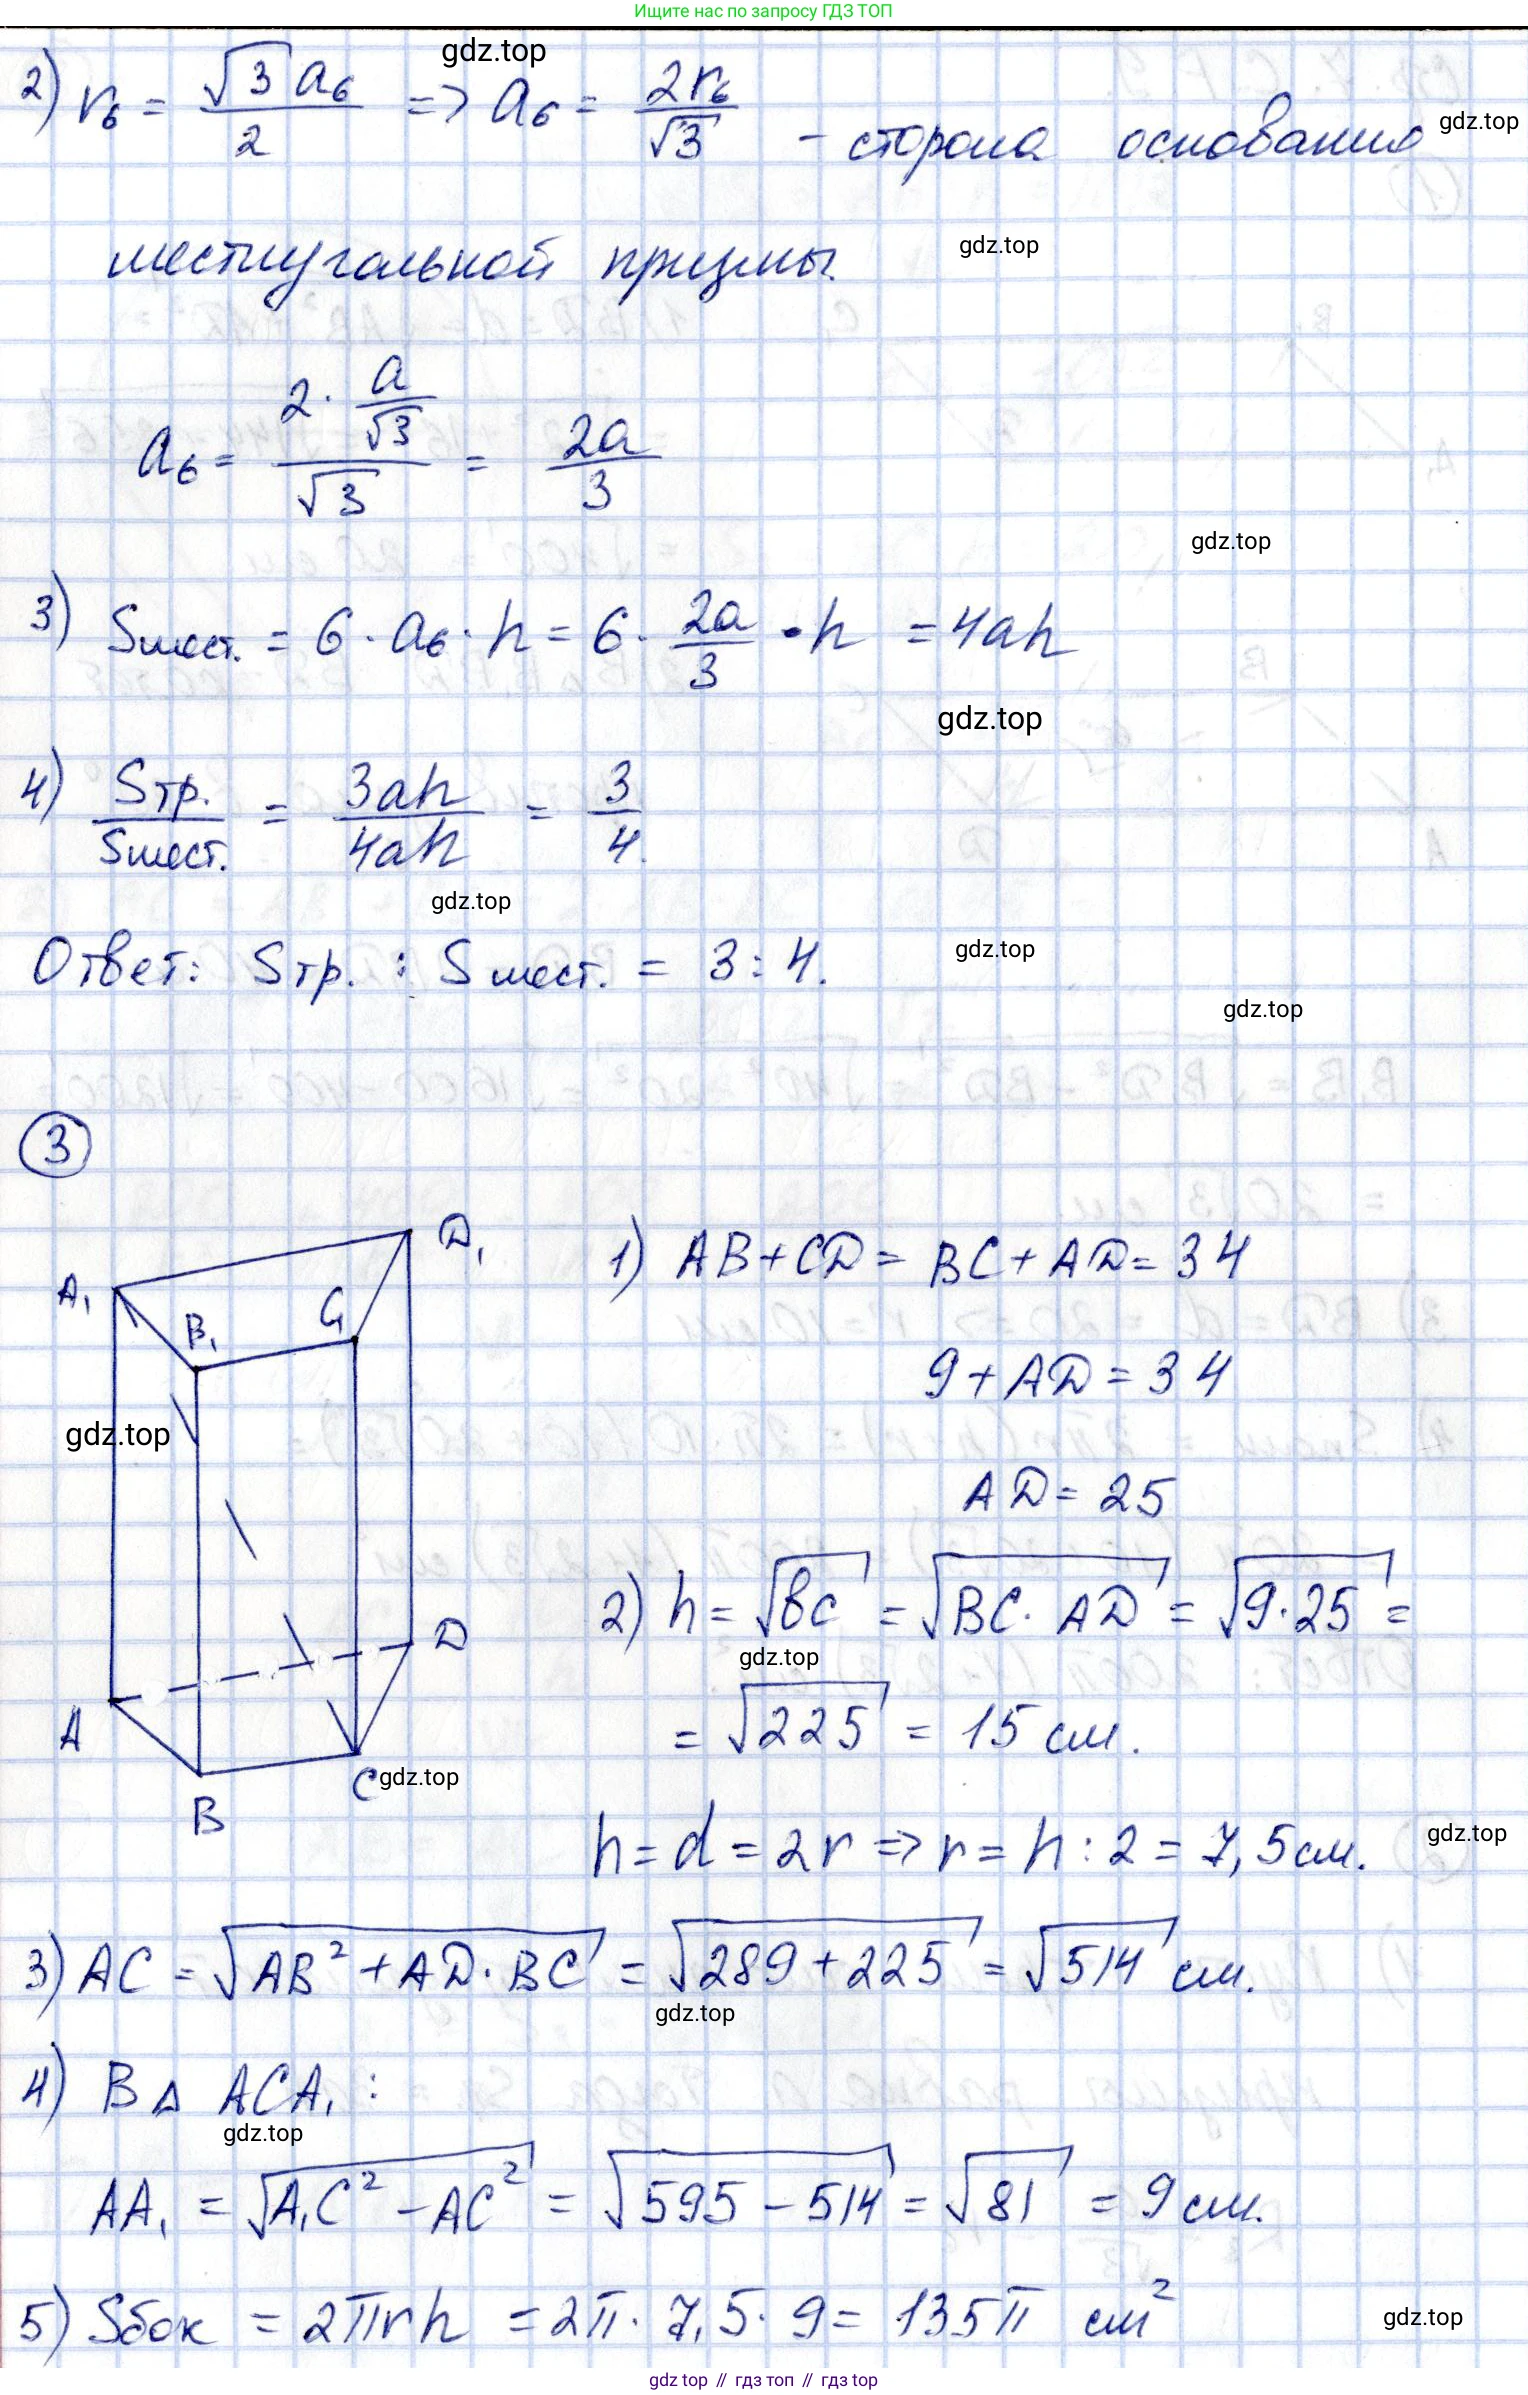 Ищите нас по запросу ГДЗ ТОП
gdz.top
2) r₆ = √3 a₆ / 2 => a₆ = 2r₆ / √3 - сторона основания
gdz.top
шестиугольной призмы.
gdz.top
a₆ = (2 · a/√3) / √3 = 2a/3
gdz.top
3) Sшест. = 6 · a₆ · h = 6 · 2a/3 · h = 4ah
gdz.top
4) Sтр. / Sшест. = 3ah / 4ah = 3/4.
gdz.top
Ответ: Sтр. : Sшест. = 3 : 4.
gdz.top
gdz.top
3
A₁ B₁ C₁ D₁
A B C D
gdz.top
1) AB + CD = BC + AD = 34
9 + AD = 34
AD = 25
2) h = √bc = √BC · AD = √9 · 25 =
gdz.top
= √225 = 15 см.
gdz.top
h = d = 2r => r = h : 2 = 7,5 см.
gdz.top
3) AC = √AB² + AD · BC = √289 + 225 = √514 см.
gdz.top
4) В △ ACA₁ :
gdz.top
AA₁ = √A₁C² - AC² = √595 - 514 = √81 = 9 см.
5) Sбок = 2πrh = 2π · 7,5 · 9 = 135π см²
gdz.top
gdz top // гдз топ // гдз top